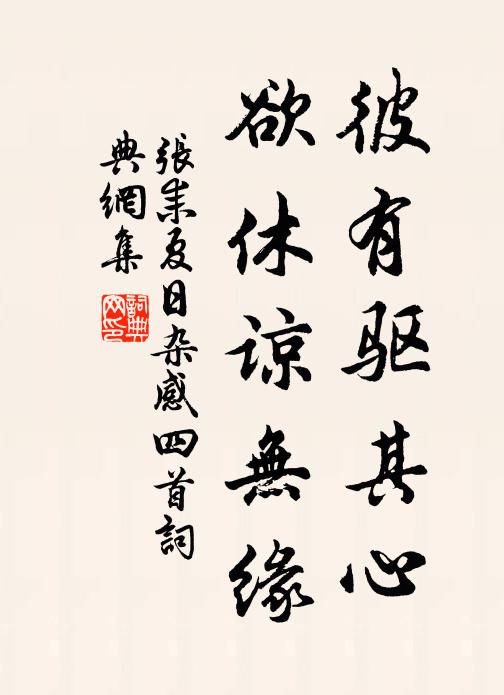 彼有驱其心
欲休谅無缘
張耒夏日杂感四首詞
典網集
詞典网印